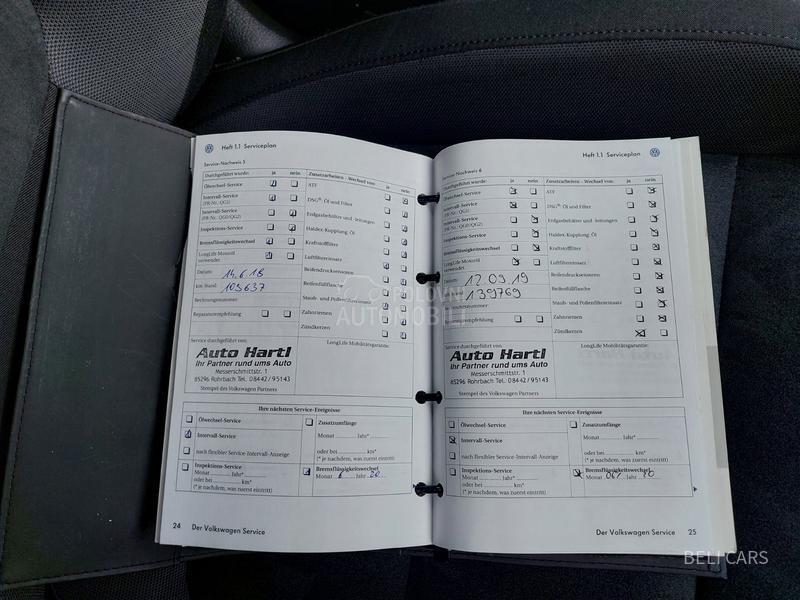 Heft 1.1 Serviceplan
Service-Nachweis 5
Durchgeführt wurde: ja nein
Ölwechsel-Service
Intervall-Service
(PR-Nr.: QG1)
Intervall-Service
(PR-Nr.: QG0/QG2)
Inspektions-Service
Bremsflüssigkeitswechsel
LongLife Motoröl
verwendet
Datum: 14.6.18
km-Stand: 103637
Rechnungsnummer:
Reparaturempfehlung
Zusatzarbeiten - Wechsel von: ja nein
ATF
DSG® Öl und Filter
Erdgasbehälter und -leitungen
Haldex-Kupplung: Öl
Kraftstofffilter
Luftfiltereinsatz
Reifendrucksensoren
Reifenfüllflasche
Staub- und Pollenfiltereinsatz
Zahnriemen
Zündkerzen
Service durchgeführt von:
Auto Hartl
Ihr Partner rund ums Auto
Messerschmittstr. 1
85296 Rohrbach Tel. 08442/95143
Stempel des Volkswagen Partners
LongLife Mobilitätsgarantie:
Ihre nächsten Service-Ereignisse
Ölwechsel-Service
Intervall-Service
nach flexibler Service-Intervall-Anzeige
Inspektions-Service
Monat ......... Jahr*.........
oder bei ......... km*
(* je nachdem, was zuerst eintritt)
Zusatzumfänge
Monat ......... Jahr*.........
oder bei ......... km*
(* je nachdem, was zuerst eintritt)
Bremsflüssigkeitswechsel
Monat 6 Jahr 20
24 Der Volkswagen Service
Heft 1.1 Serviceplan
Service-Nachweis 6
Durchgeführt wurde: ja nein
Ölwechsel-Service
Intervall-Service
(PR-Nr.: QG1)
Intervall-Service
(PR-Nr.: QG0/QG2)
Inspektions-Service
Bremsflüssigkeitswechsel
LongLife Motoröl
verwendet
12.09.19
139769
Zusatzarbeiten - Wechsel von: ja nein
ATF
DSG® Öl und Filter
Erdgasbehälter und -leitungen
Haldex-Kupplung: Öl
Kraftstofffilter
Luftfiltereinsatz
Reifendrucksensoren
Reifenfüllflasche
Staub- und Pollenfiltereinsatz
Zahnriemen
Zündkerzen
Service durchgeführt von:
Auto Hartl
Ihr Partner rund ums Auto
Messerschmittstr. 1
85296 Rohrbach Tel. 08442/95143
Stempel des Volkswagen Partners
LongLife Mobilitätsgarantie:
Ihre nächsten Service-Ereignisse
Ölwechsel-Service
Intervall-Service
nach flexibler Service-Intervall-Anzeige
Inspektions-Service
Monat ......... Jahr*.........
oder bei ......... km*
(* je nachdem, was zuerst eintritt)
Zusatzumfänge
Monat ......... Jahr*.........
oder bei ......... km*
(* je nachdem, was zuerst eintritt)
Bremsflüssigkeitswechsel
Monat 06 Jahr 20
Der Volkswagen Service 25
POLOVNI
AUTOMOBILI
BELI CARS